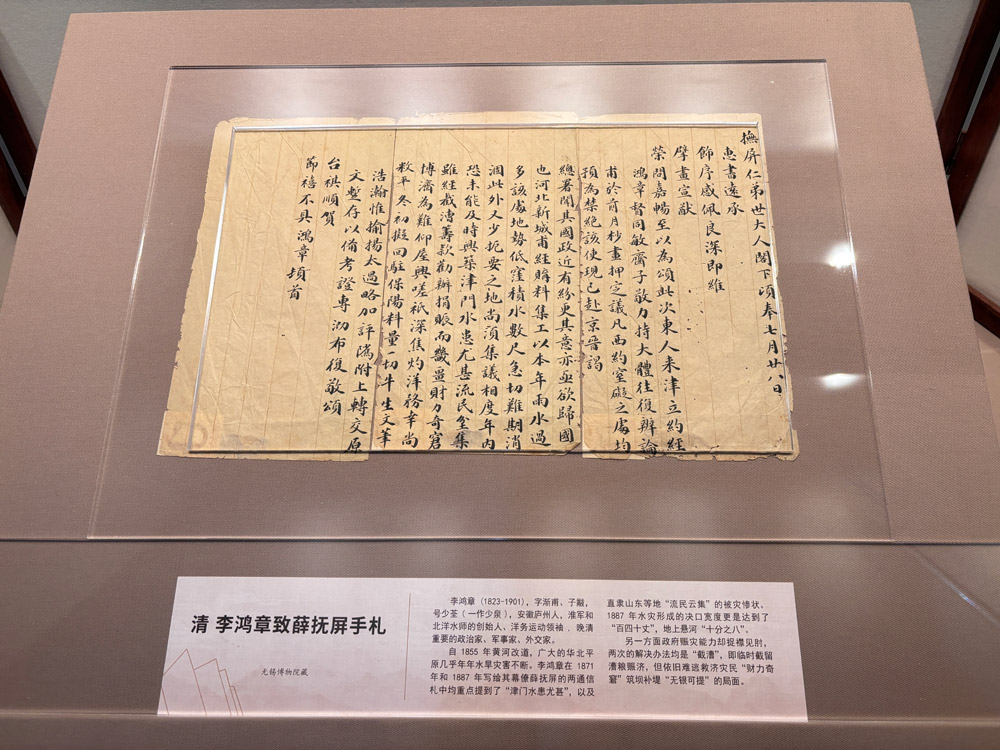 撫屏仁弟世大人閣下頃奉七月廿八日
惠書遠承
飾序感佩良深即維
擘畫宣猷
榮問嘉暢至以為頌此次東人來津立約經
鴻章督同敏齋子敬力持大體往復辦論
甫於前月杪畫押定議凡西約窒礙之處均
預為禁絕該使現已赴京晉謁
總署聞其國政近有紛更其意亦亟欲歸國
也河北新城甫經購料集工以本年雨水過
多該處地勢低窪積水數尺急切難期消
涸此外又少扼要之地尚須集議相度年內
恐未能及時興築津門水患尤甚流民坌集
雖經截漕籌款勸辦捐賑而災量財力奇窘
博濟為難仰屋興嗟祇深焦灼洋務幸尚
敉平冬初擬回駐保陽料量一切牛生文筆
浩瀚惟揄揚太過略加評隲附上轉交原
文暫存以備考證專泐布復敬頌
台祺順賀
節禧不具鴻章頓首
清 李鸿章致薛抚屏手札
无锡博物院藏
李鸿章（1823-1901），字渐甫、子黻，
号少荃（一作少泉），安徽庐州人，淮军和
北洋水师的创始人、洋务运动领袖、晚清
重要的政治家、军事家、外交家。
自 1855 年黄河改道，广大的华北平
原几乎年年水旱灾害不断。李鸿章在 1871
年和 1887 年写给其幕僚薛抚屏的两通信
札中均重点提到了“津门水患尤甚”，以及
直隶山东等地“流民云集”的被灾惨状。
1887 年水灾形成的决口宽度更是达到了
“百四十丈”，地上悬河“十分之八”。
另一方面政府赈灾能力却捉襟见肘，
两次的解决办法均是“截漕”，即临时截留
漕粮赈济，但依旧难逃救济灾民“财力奇
窘”筑坝补堤“无银可提”的局面。